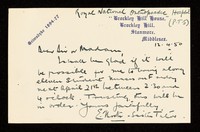 Royal National Orthopaedic Hospital
"Brockley Hill House,"
Brockley Hill,
Stanmore,
Middlesex.
12.4.50
Dear Sir or Madam,
I should be glad if it will
be possible for me to bring along
eleven Student Nurses on Friday
next April 21st between 2.30 and
4 o'clock. Trusting this will be
in order. Yours faithfully,
Sister Tutor